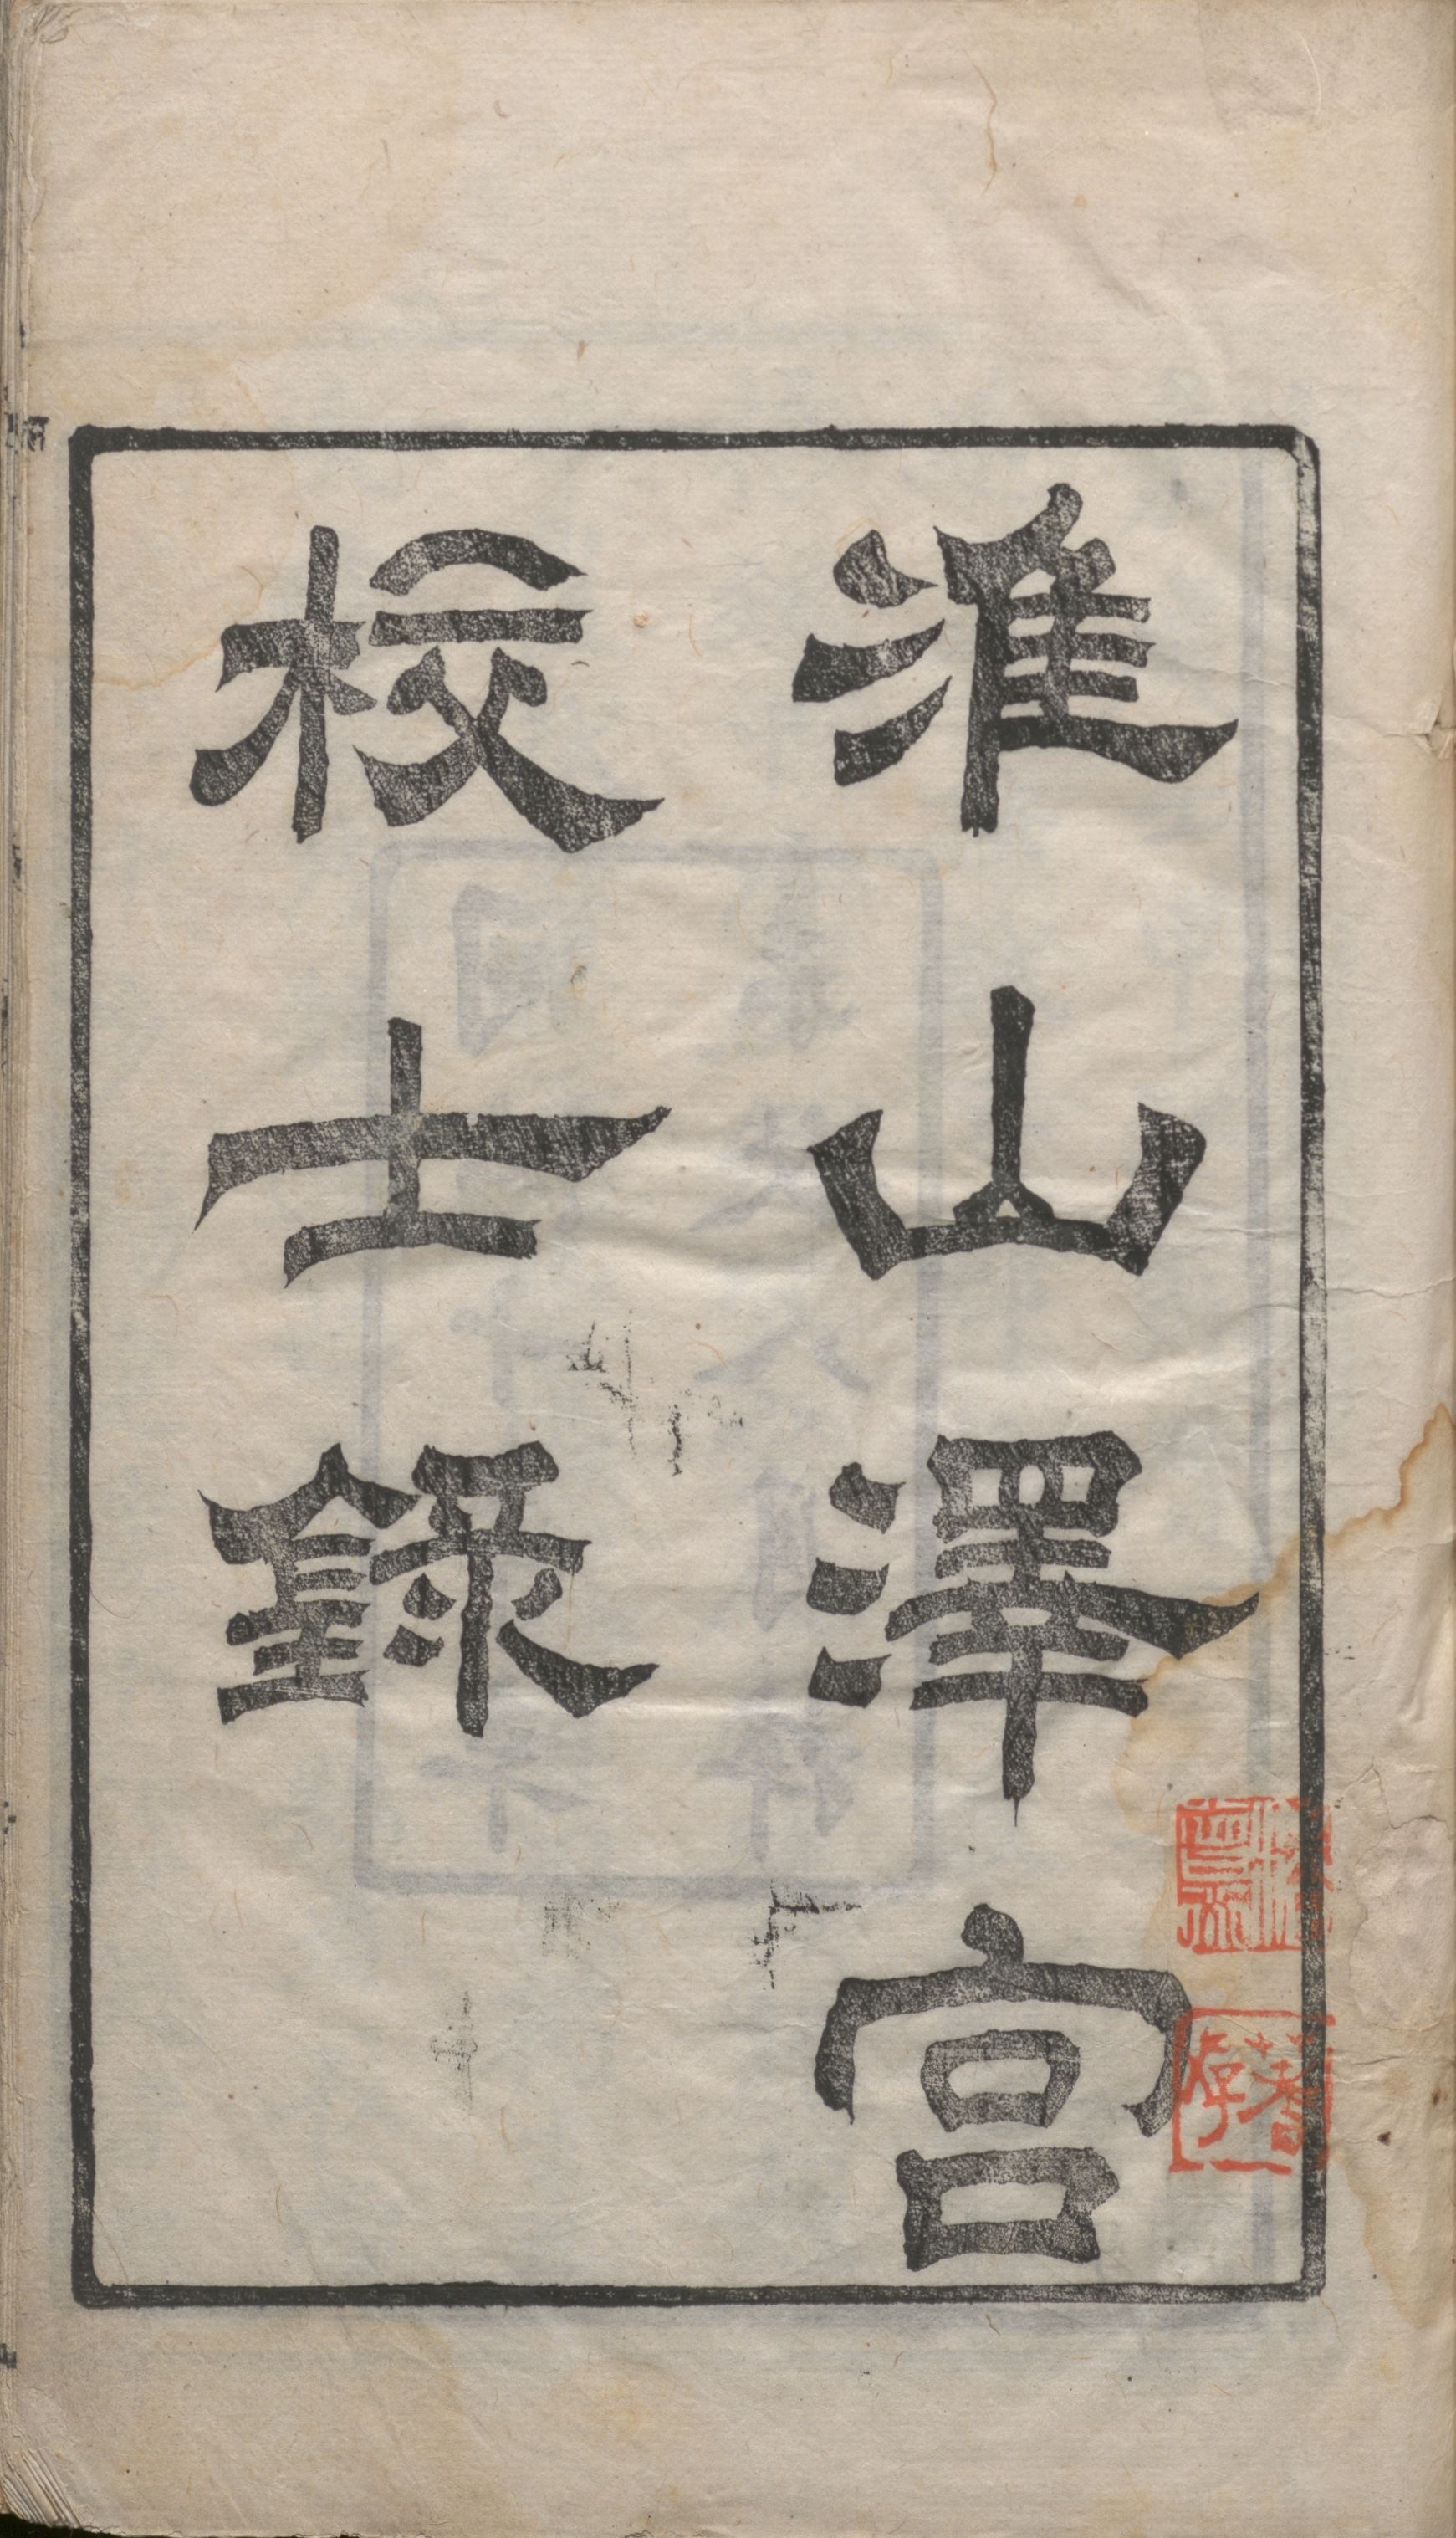 淮山澤宮
校士錄